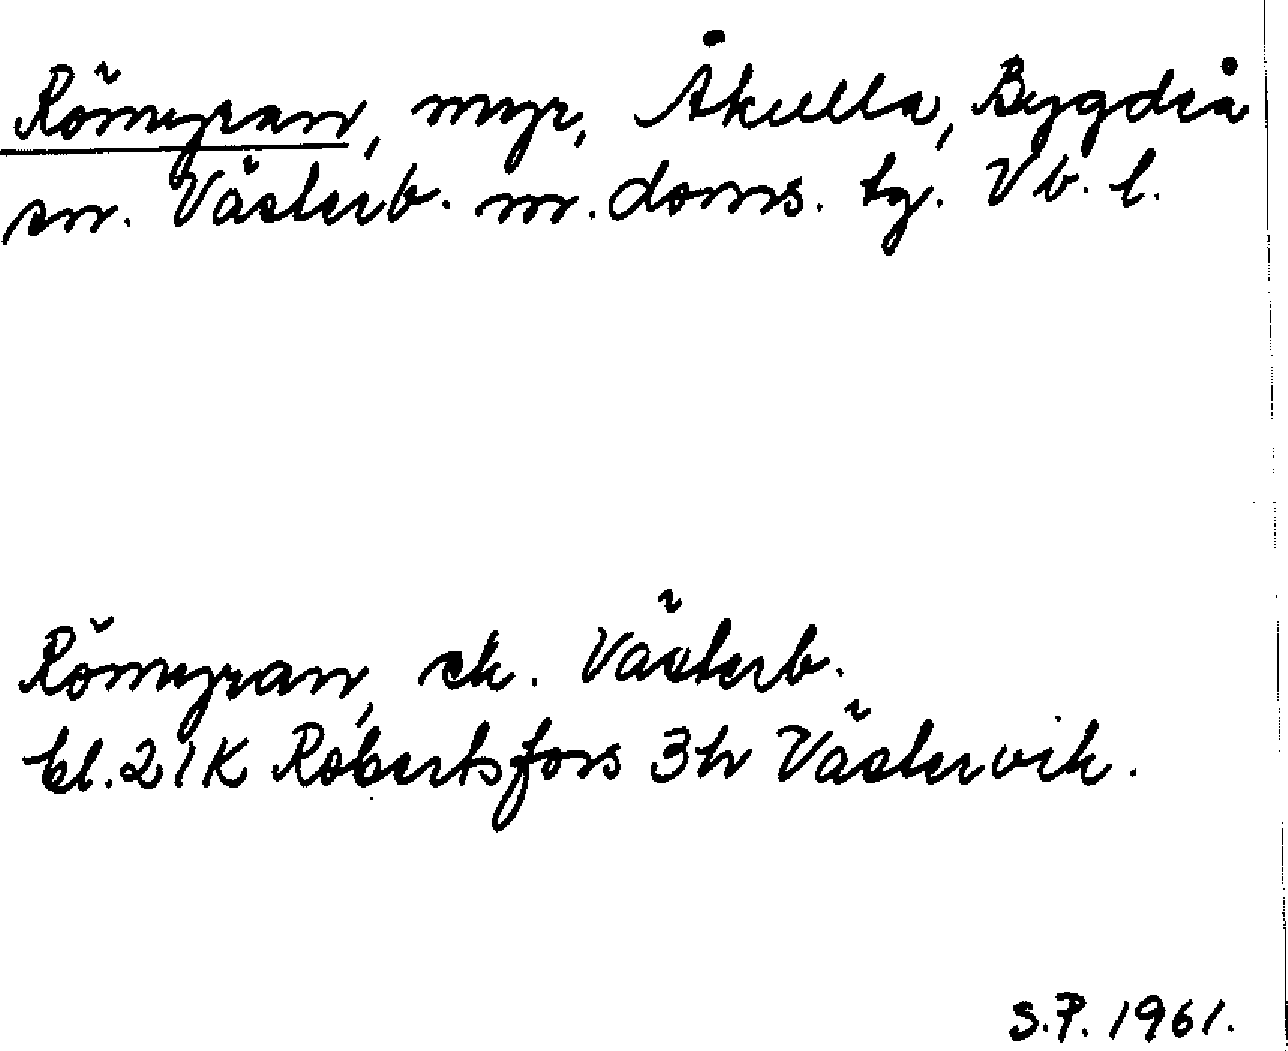 Römyran, myr, Åkulla, Bygdeå
sn. Västerb. m. doms. tg. Vb. l.
Römyran, ek. Västerb.
bl. 21K Robertsfors 3h Västervik.
S.P. 1961.